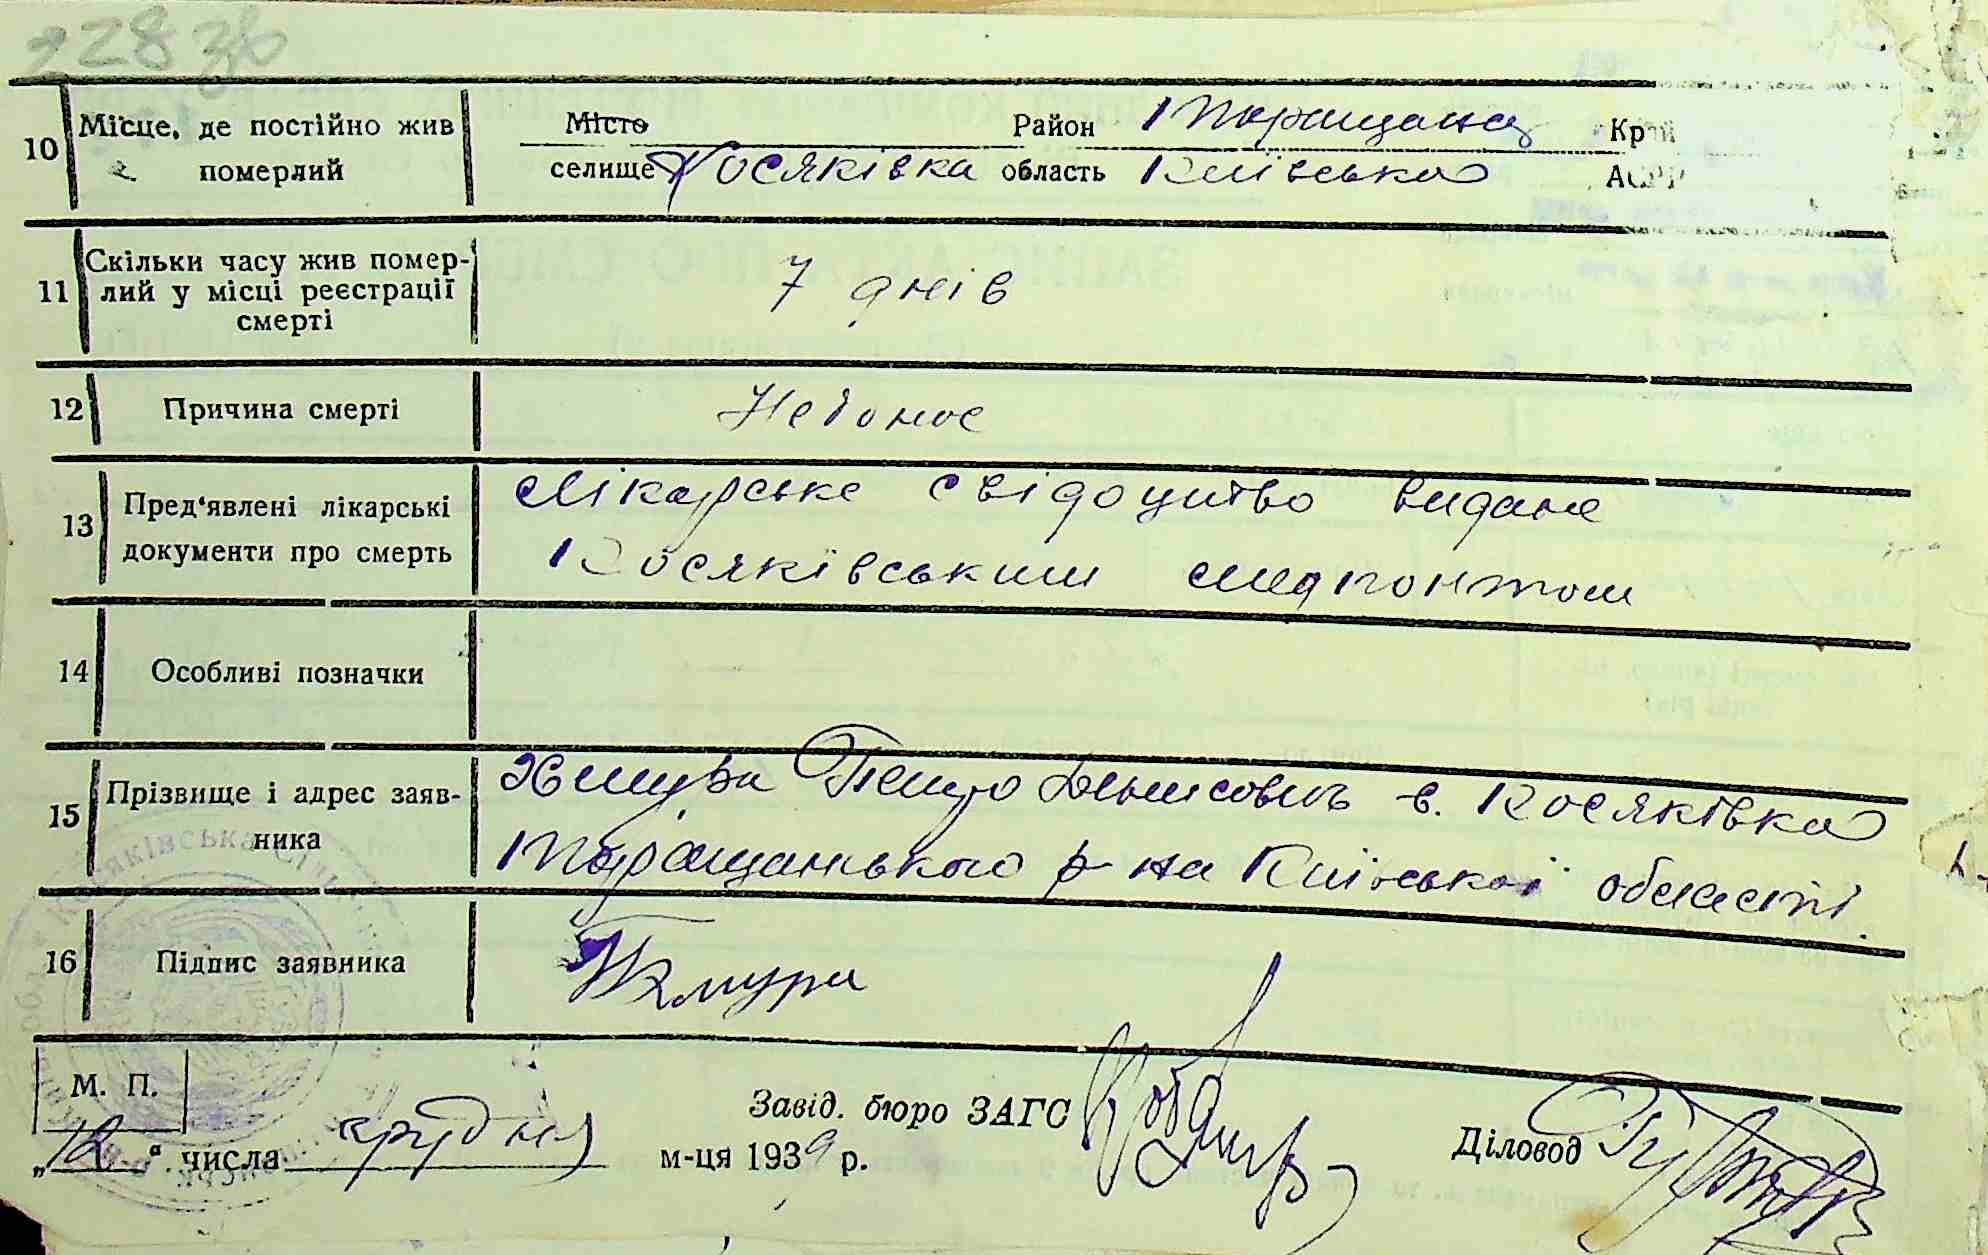 228 зв
10 Місце, де постійно жив померлий Місто Район Таращанс Край
селище Косяківка область Київська АСРР
11 Скільки часу жив помер-
лий у місці реєстрації 7 днів
смерті
12 Причина смерті Недонос
13 Пред'явлені лікарські Лікарське свідоцитво видане
документи про смерть Косяківським медпонтом
14 Особливі позначки
15 Прізвище і адрес заяв- Хмура Петро Денисович с. Косяківка
ника Таращанського р-на Київської області
16 Підпис заявника Хмура
М. П. Завід. бюро ЗАГС
„12“ числа грудня м-ця 1939 р. Діловод